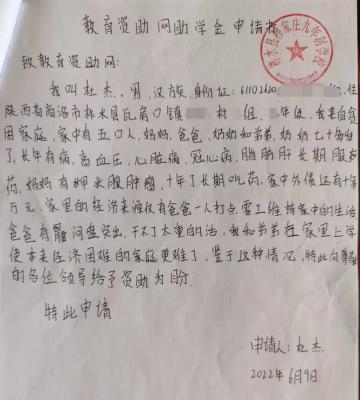 教育资助网助学金申请书
柞水县 家庄九年制学校
致教育资助网：
我叫杜杰，男，汉族，身份证：61102620 ，住
陕西省商洛市柞水县瓦房口镇 村 组， 年级，我来自贫
困家庭，家中有五口人，妈妈，爸爸，奶奶和弟弟，奶奶七十多岁
了，长年有病，高血压，心脏病，冠心病， 长期服
药，妈妈有 肿瘤，十年了长期吃药，家中外债还有十年
万元，家里的经济来源仅有爸爸一人打点零工维持家中的生活
爸爸有腰间盘突出，干不了太重的活，我和弟弟在家里上学
使本来经济困难的家庭更难了，鉴于这种情况，特此向尊敬
的各位领导给予资助为盼
特此申请
申请人：杜杰
2022年6月9日